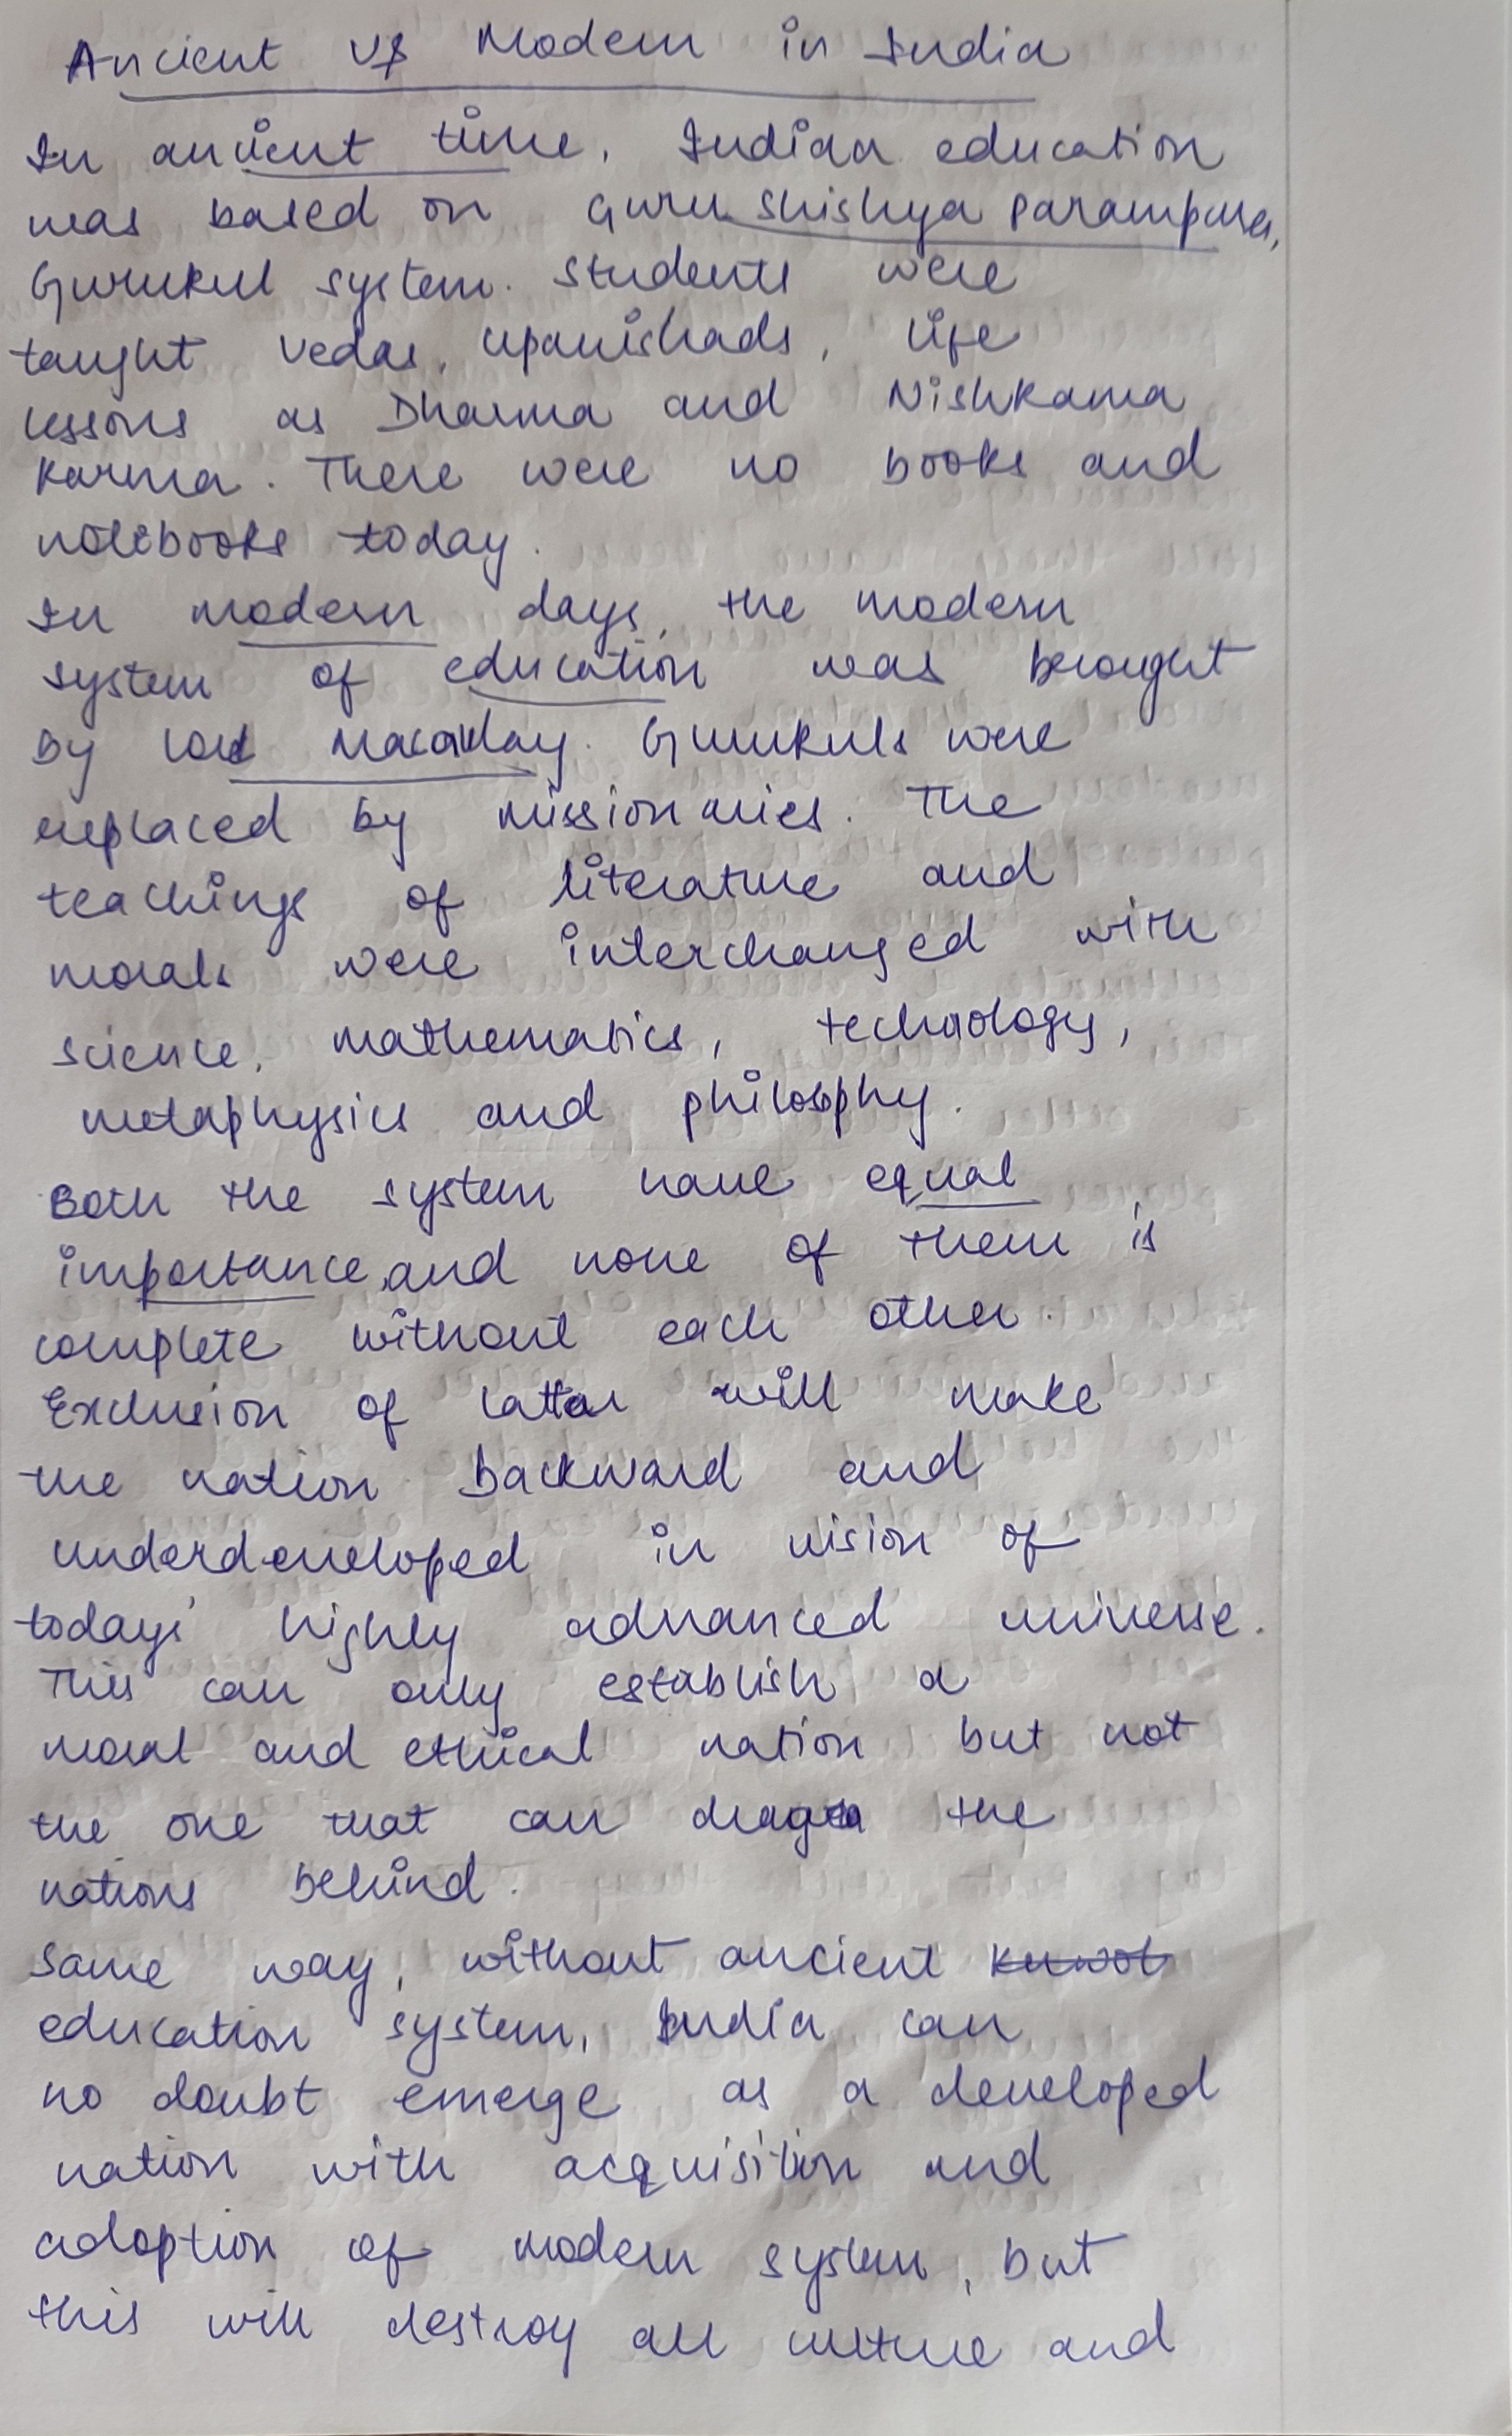 Ancient vs Modern in India
In ancient time, Indian education
was based on Guru Shishya Parampara,
Gurukul system. Students were
taught Vedas, Upanishads, life
lessons as Dharma and Nishkama
Karma. There were no books and
notebooks today.
In modern days, the modern
system of education was brought
by Lord Macaulay. Gurukuls were
replaced by missionaries. The
teachings of literature and
morals were interchanged with
science, mathematics, technology,
metaphysics and philosophy.
Both the system have equal
importance, and none of them is
complete without each other.
Exclusion of latter will make
the nation backward and
underdeveloped in vision of
todays' highly advanced universe.
This can only establish a
moral and ethical nation but not
the one that can the
nations behind.
Same way, without ancient
education system, India can
no doubt emerge as a developed
nation with acquisition and
adoption of modern system, but
this will destroy all culture and